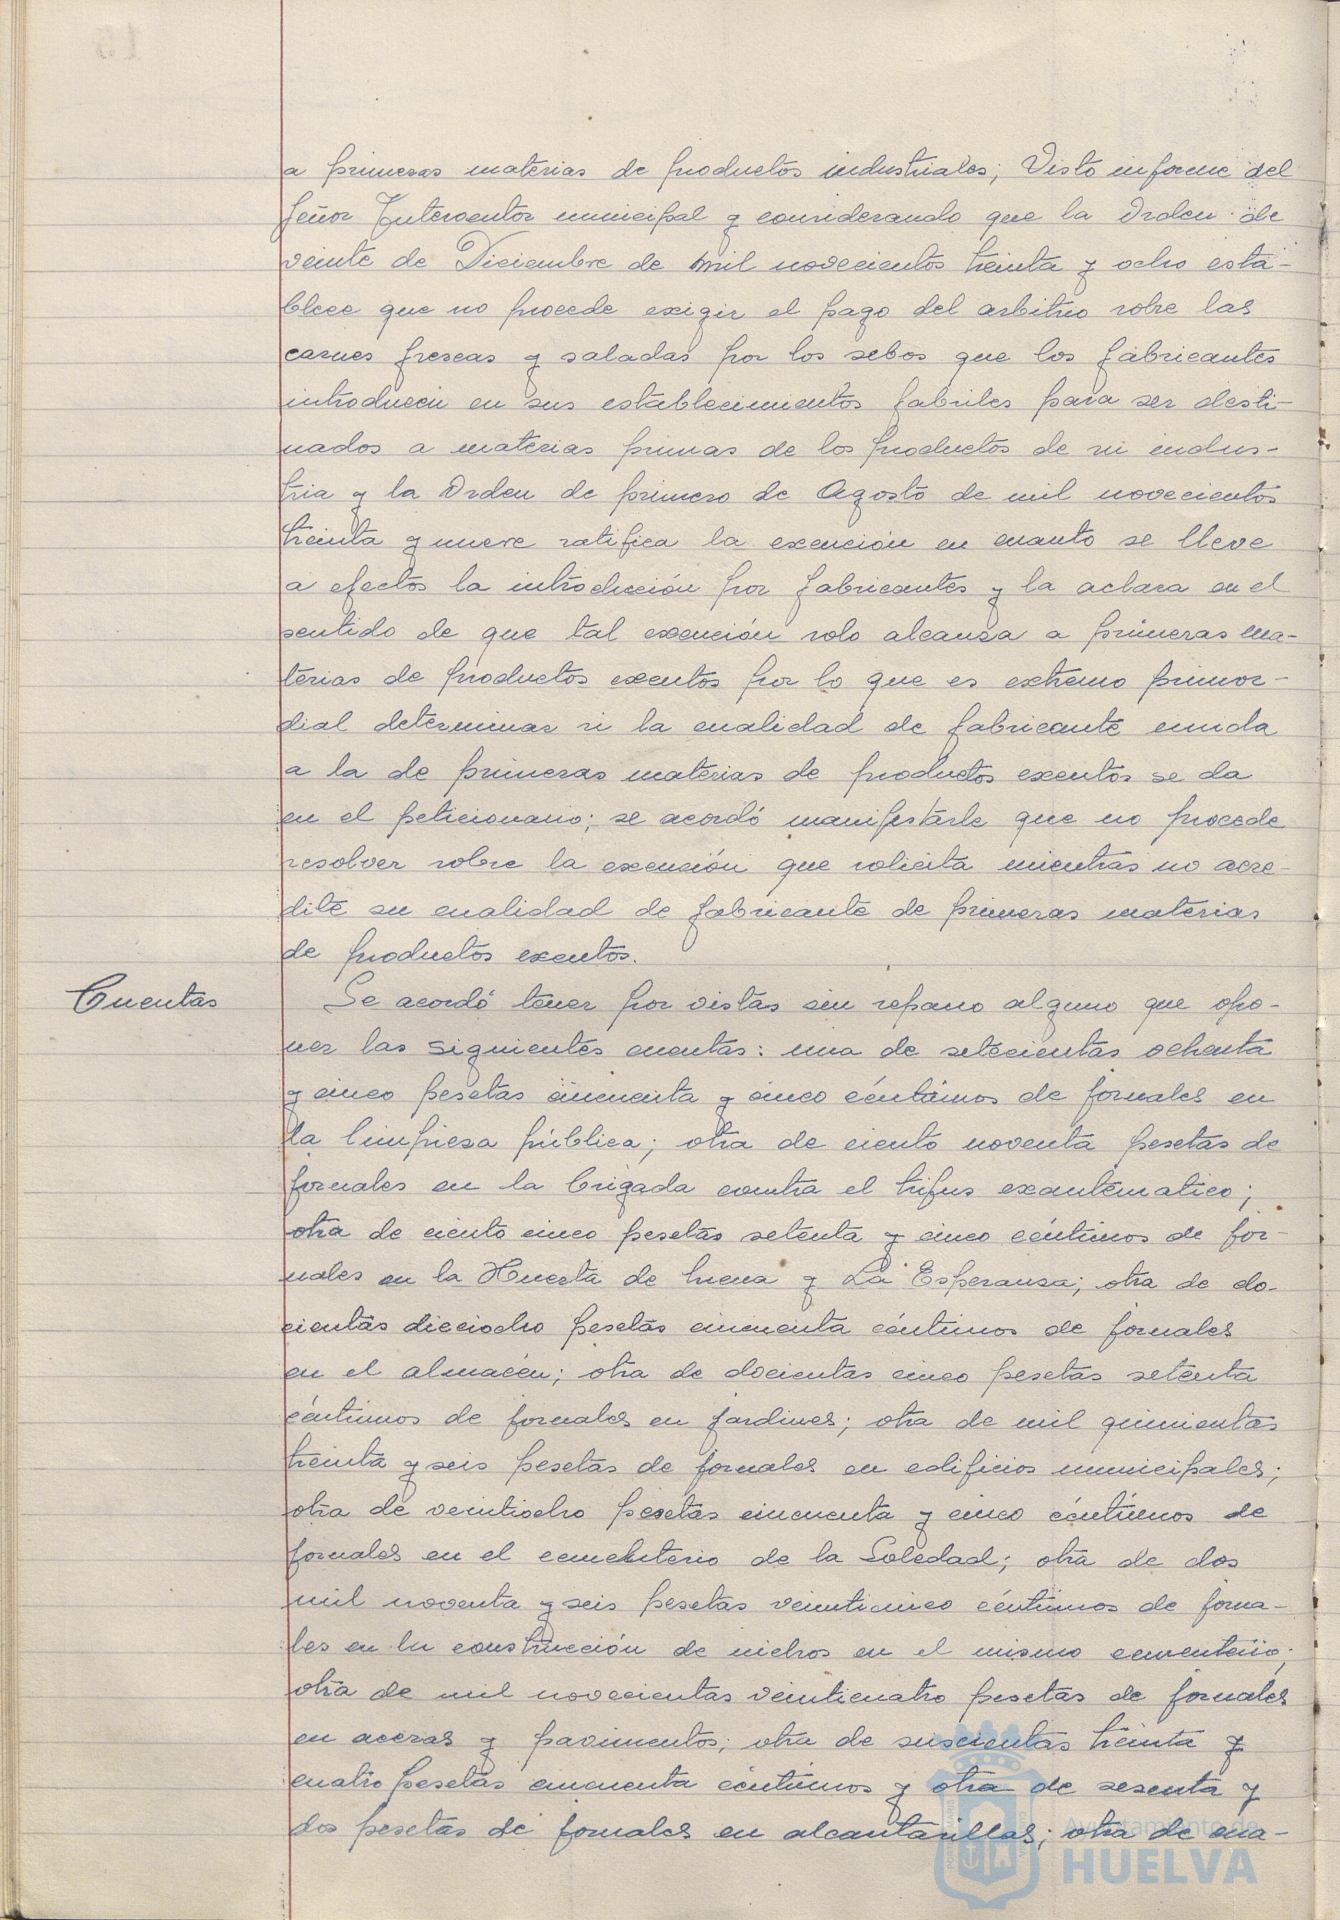 a primeras materias de productos industriales; Visto informe del
Señor Interventor municipal y considerando que la Orden de
veinte de Diciembre de mil novecientos treinta y ocho esta-
blece que no procede exigir el pago del arbitrio sobre las
carnes frescas y saladas por los sebos que los fabricantes
introducen en sus establecimientos fabriles para ser desti-
nados a materias primas de los productos de su indus-
tria y la Orden de primero de Agosto de mil novecientos
treinta y nueve ratifica la exención en cuanto se lleve
a efectos la introducción por fabricantes y la aclara en el
sentido de que tal exención solo alcanza a primeras ma-
terias de productos exentos por lo que es extremo primor-
dial determinar si la cualidad de fabricante unida
a la de primeras materias de productos exentos se da
en el peticionario; se acordó manifestarle que no procede
resolver sobre la exención que solicita mientras no acre-
dite su cualidad de fabricante de primeras materias
de productos exentos.
Cuentas
Se acordó tener por vistas sin reparo alguno que opo-
ner las siguientes cuentas: una de setecientas ochenta
y cinco pesetas cincuenta y cinco céntimos de jornales en
la limpieza pública; otra de ciento noventa pesetas de
jornales en la brigada contra el tifus exantematico;
otra de ciento cinco pesetas setenta y cinco céntimos de jor-
nales en la Huerta de Mena y La Esperanza; otra de do-
cientas dieciocho pesetas cincuenta céntimos de jornales
en el almacén; otra de docientas cinco pesetas setenta
céntimos de jornales en jardines; otra de mil quinientas
treinta y seis pesetas de jornales en edificios municipales;
otra de veintiocho pesetas cincuenta y cinco céntimos de
jornales en el cementerio de la Soledad; otra de dos
mil noventa y seis pesetas veinticinco céntimos de jorna-
les en la construcción de nichos en el mismo cementerio;
otra de mil novecientas veinticuatro pesetas de jornales
en aceras y pavimentos; otra de suscientas treinta y
cuatro pesetas cincuenta céntimos y otra de sesenta y
dos pesetas de jornales en alcantarillas; otra de cua-
Ayuntamiento de
HUELVA